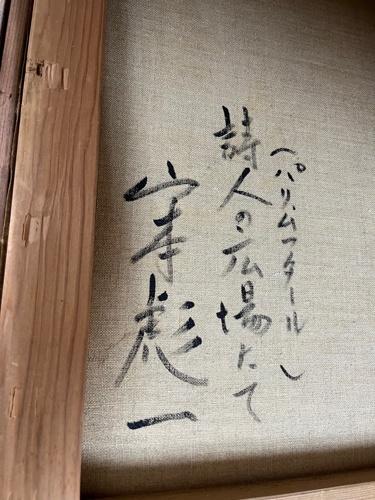 (パリ、ムフタール)
詩人の広場にて
山本彪一